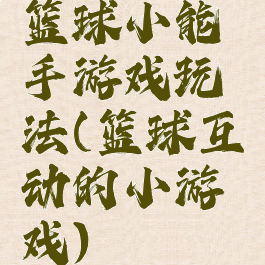 篮球小能
手游戏玩
法(篮球互
动的小游
戏)